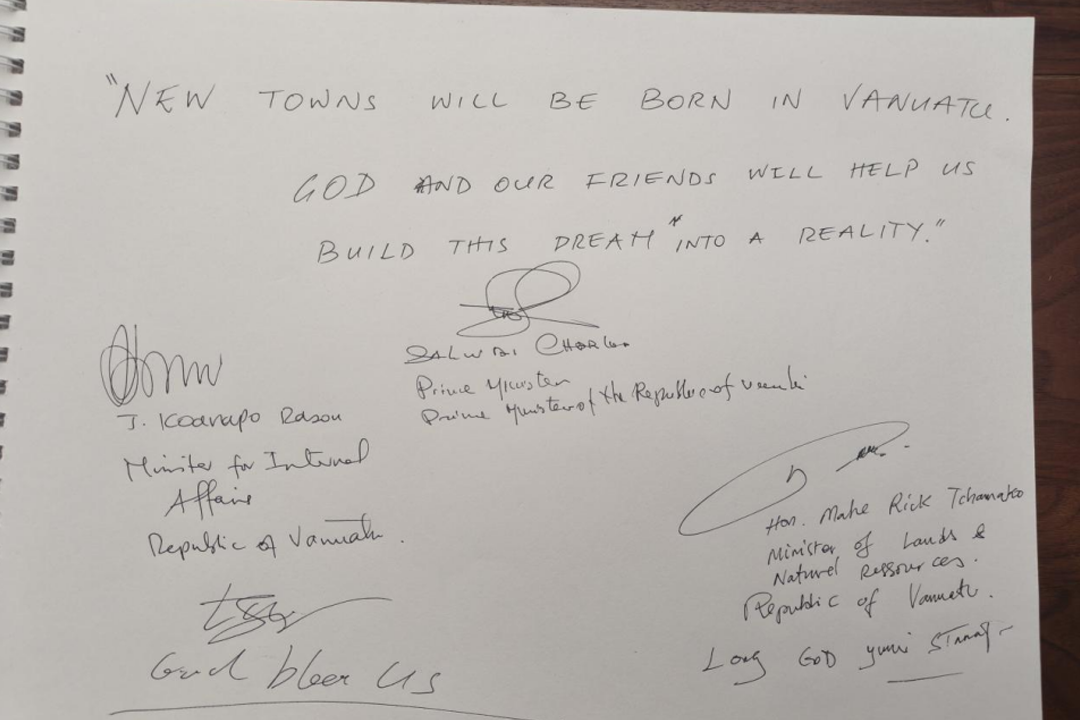 "NEW TOWNS WILL BE BORN IN VANUATU.
GOD AND OUR FRIENDS WILL HELP US
BUILD THIS DREAM INTO A REALITY."
SALWAI CHARLOT
Prime Minister
Prime Minister of the Republic of Vanuatu
J. Koanapo Rasou
Minister for Internal
Affairs
Republic of Vanuatu.
God bless US
Hon. Mahe Rick Tchamako
Minister of Lands &
Natural Ressources.
Republic of Vanuatu.
Long GOD yumi STANAP